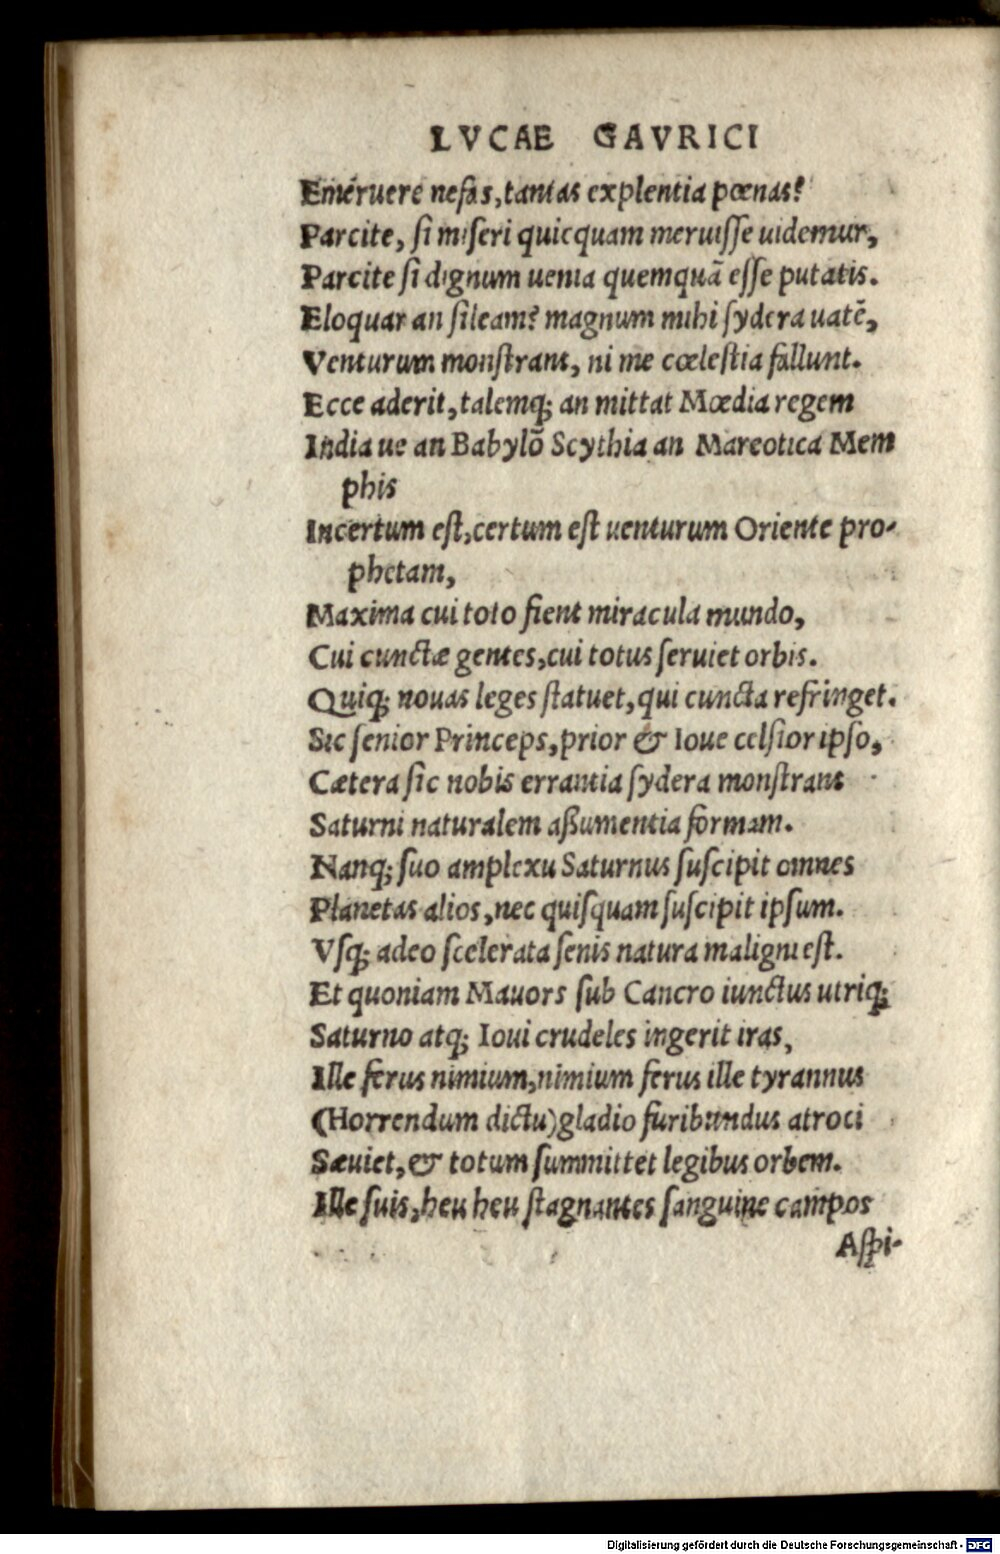 LVCAE GAVRICI
Emeruere nefas, tantas explentia pœnas?
Parcite, ſi miſeri quicquam meruiſſe uidemur,
Parcite ſi dignum uenia quemquã eſſe putatis.
Eloquar an ſileam? magnum mihi ſydera uatẽ,
Venturum monſtrant, ni me cœleſtia fallunt.
Ecce aderit, talemq; an mittat Mœdia regem
India ue an Babylõ Scythia an Mareotica Mem
phis
Incertum eſt, certum eſt uenturum Oriente pro-
phetam,
Maxima cui toto fient miracula mundo,
Cui cunctæ gentes, cui totus ſeruiet orbis.
Quiq; nouas leges ſtatuet, qui cuncta refringet.
Sic ſenior Princeps, prior & Ioue celſior ipſo,
Cætera ſic nobis errantia ſydera monſtrant
Saturni naturalem aßumentia formam.
Nanq; ſuo amplexu Saturnus ſuſcipit omnes
Planetas alios, nec quiſquam ſuſcipit ipſum.
Vſq; adeo ſcelerata ſenis natura maligni eſt.
Et quoniam Mauors ſub Cancro iunctus utriq;
Saturno atq; Ioui crudeles ingerit iras,
Ille ferus nimium, nimium ferus ille tyrannus
(Horrendum dictu) gladio furibundus atroci
Sæuiet, & totum ſummittet legibus orbem.
Ille ſuis, heu heu ſtagnantes ſanguine campos
Aſpi-
Digitalisierung gefördert durch die Deutsche Forschungsgemeinschaft - DFG